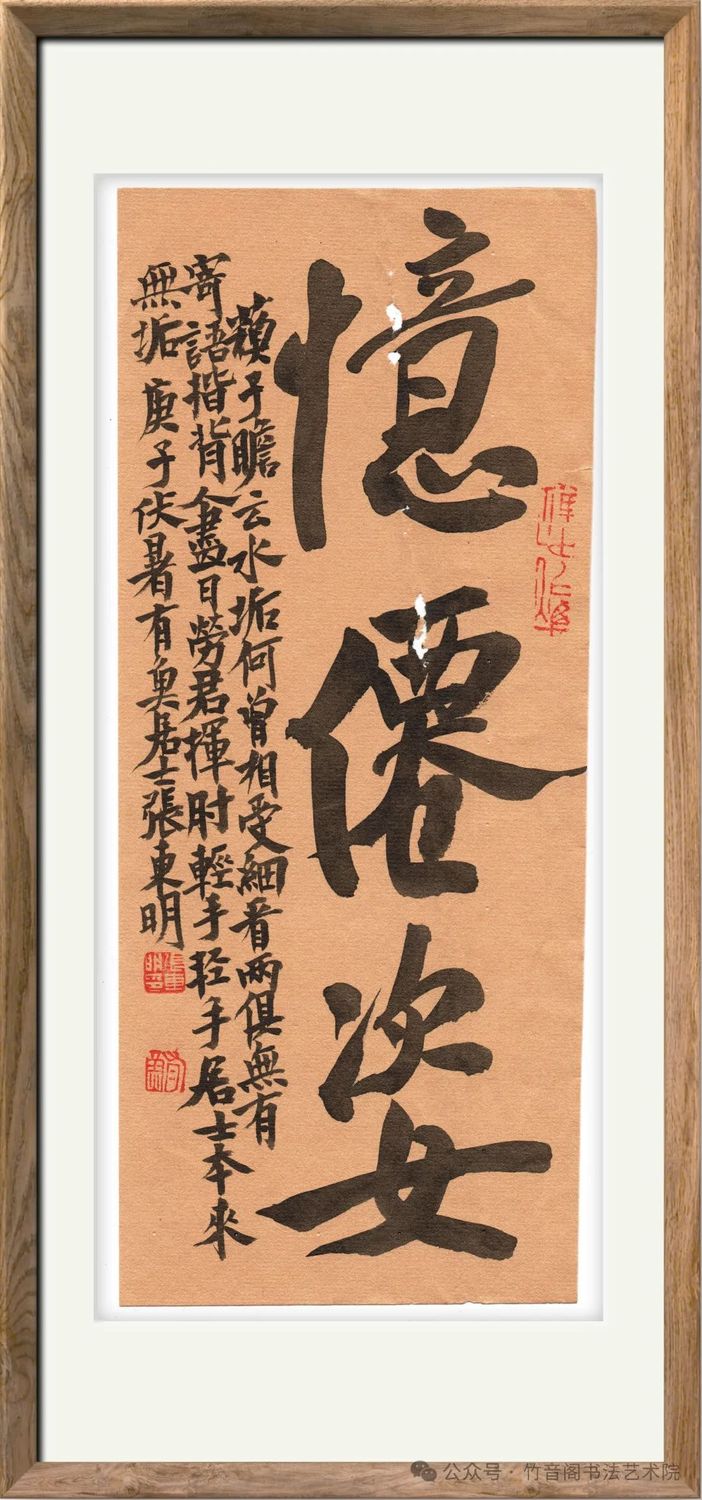 憶僊姿
蘇子瞻云水垢何曾相受細看兩俱無有
寄語揩背人盡日勞君揮肘輕手轻手居士本來
無垢 庚子伏暑有魚居士張東明
張東明印
公众号 · 竹音阁书法艺术院